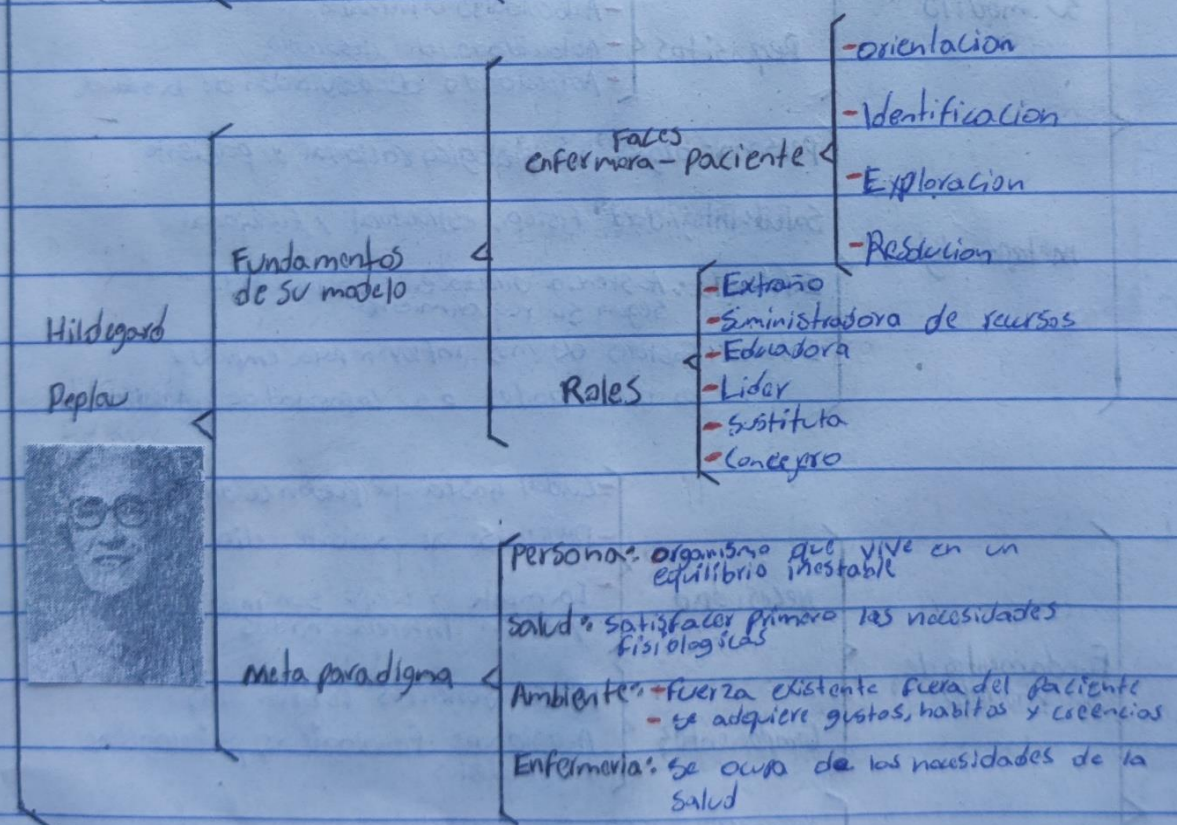 Hildegard
Peplau
Fundamentos
de su modelo
Faces
enfermera - paciente
- orientacion
- Identificacion
- Exploracion
- Resolucion
Roles
- Extraño
- Suministradora de recursos
- Educadora
- Lider
- Sustituta
- Concejro
Meta paradigma
Persona: organismo que vive en un
equilibrio inestable
Salud: satisfacer primero las necesidades
fisiologicas
Ambiente: - fuerza existente fuera del paciente
- se adquiere gustos, habitos y creencias
Enfermeria: se ocupa de las necesidades de la
salud